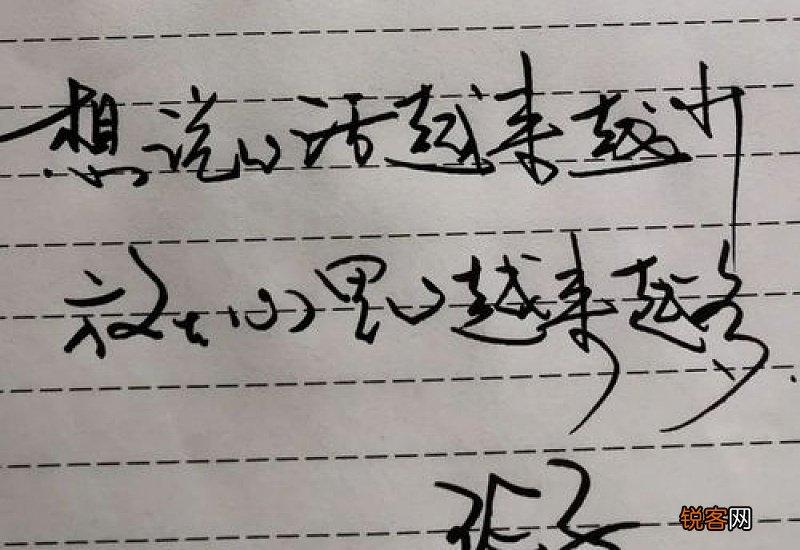 想说的话越来越少
放在心里的越来越多
张
锐客网